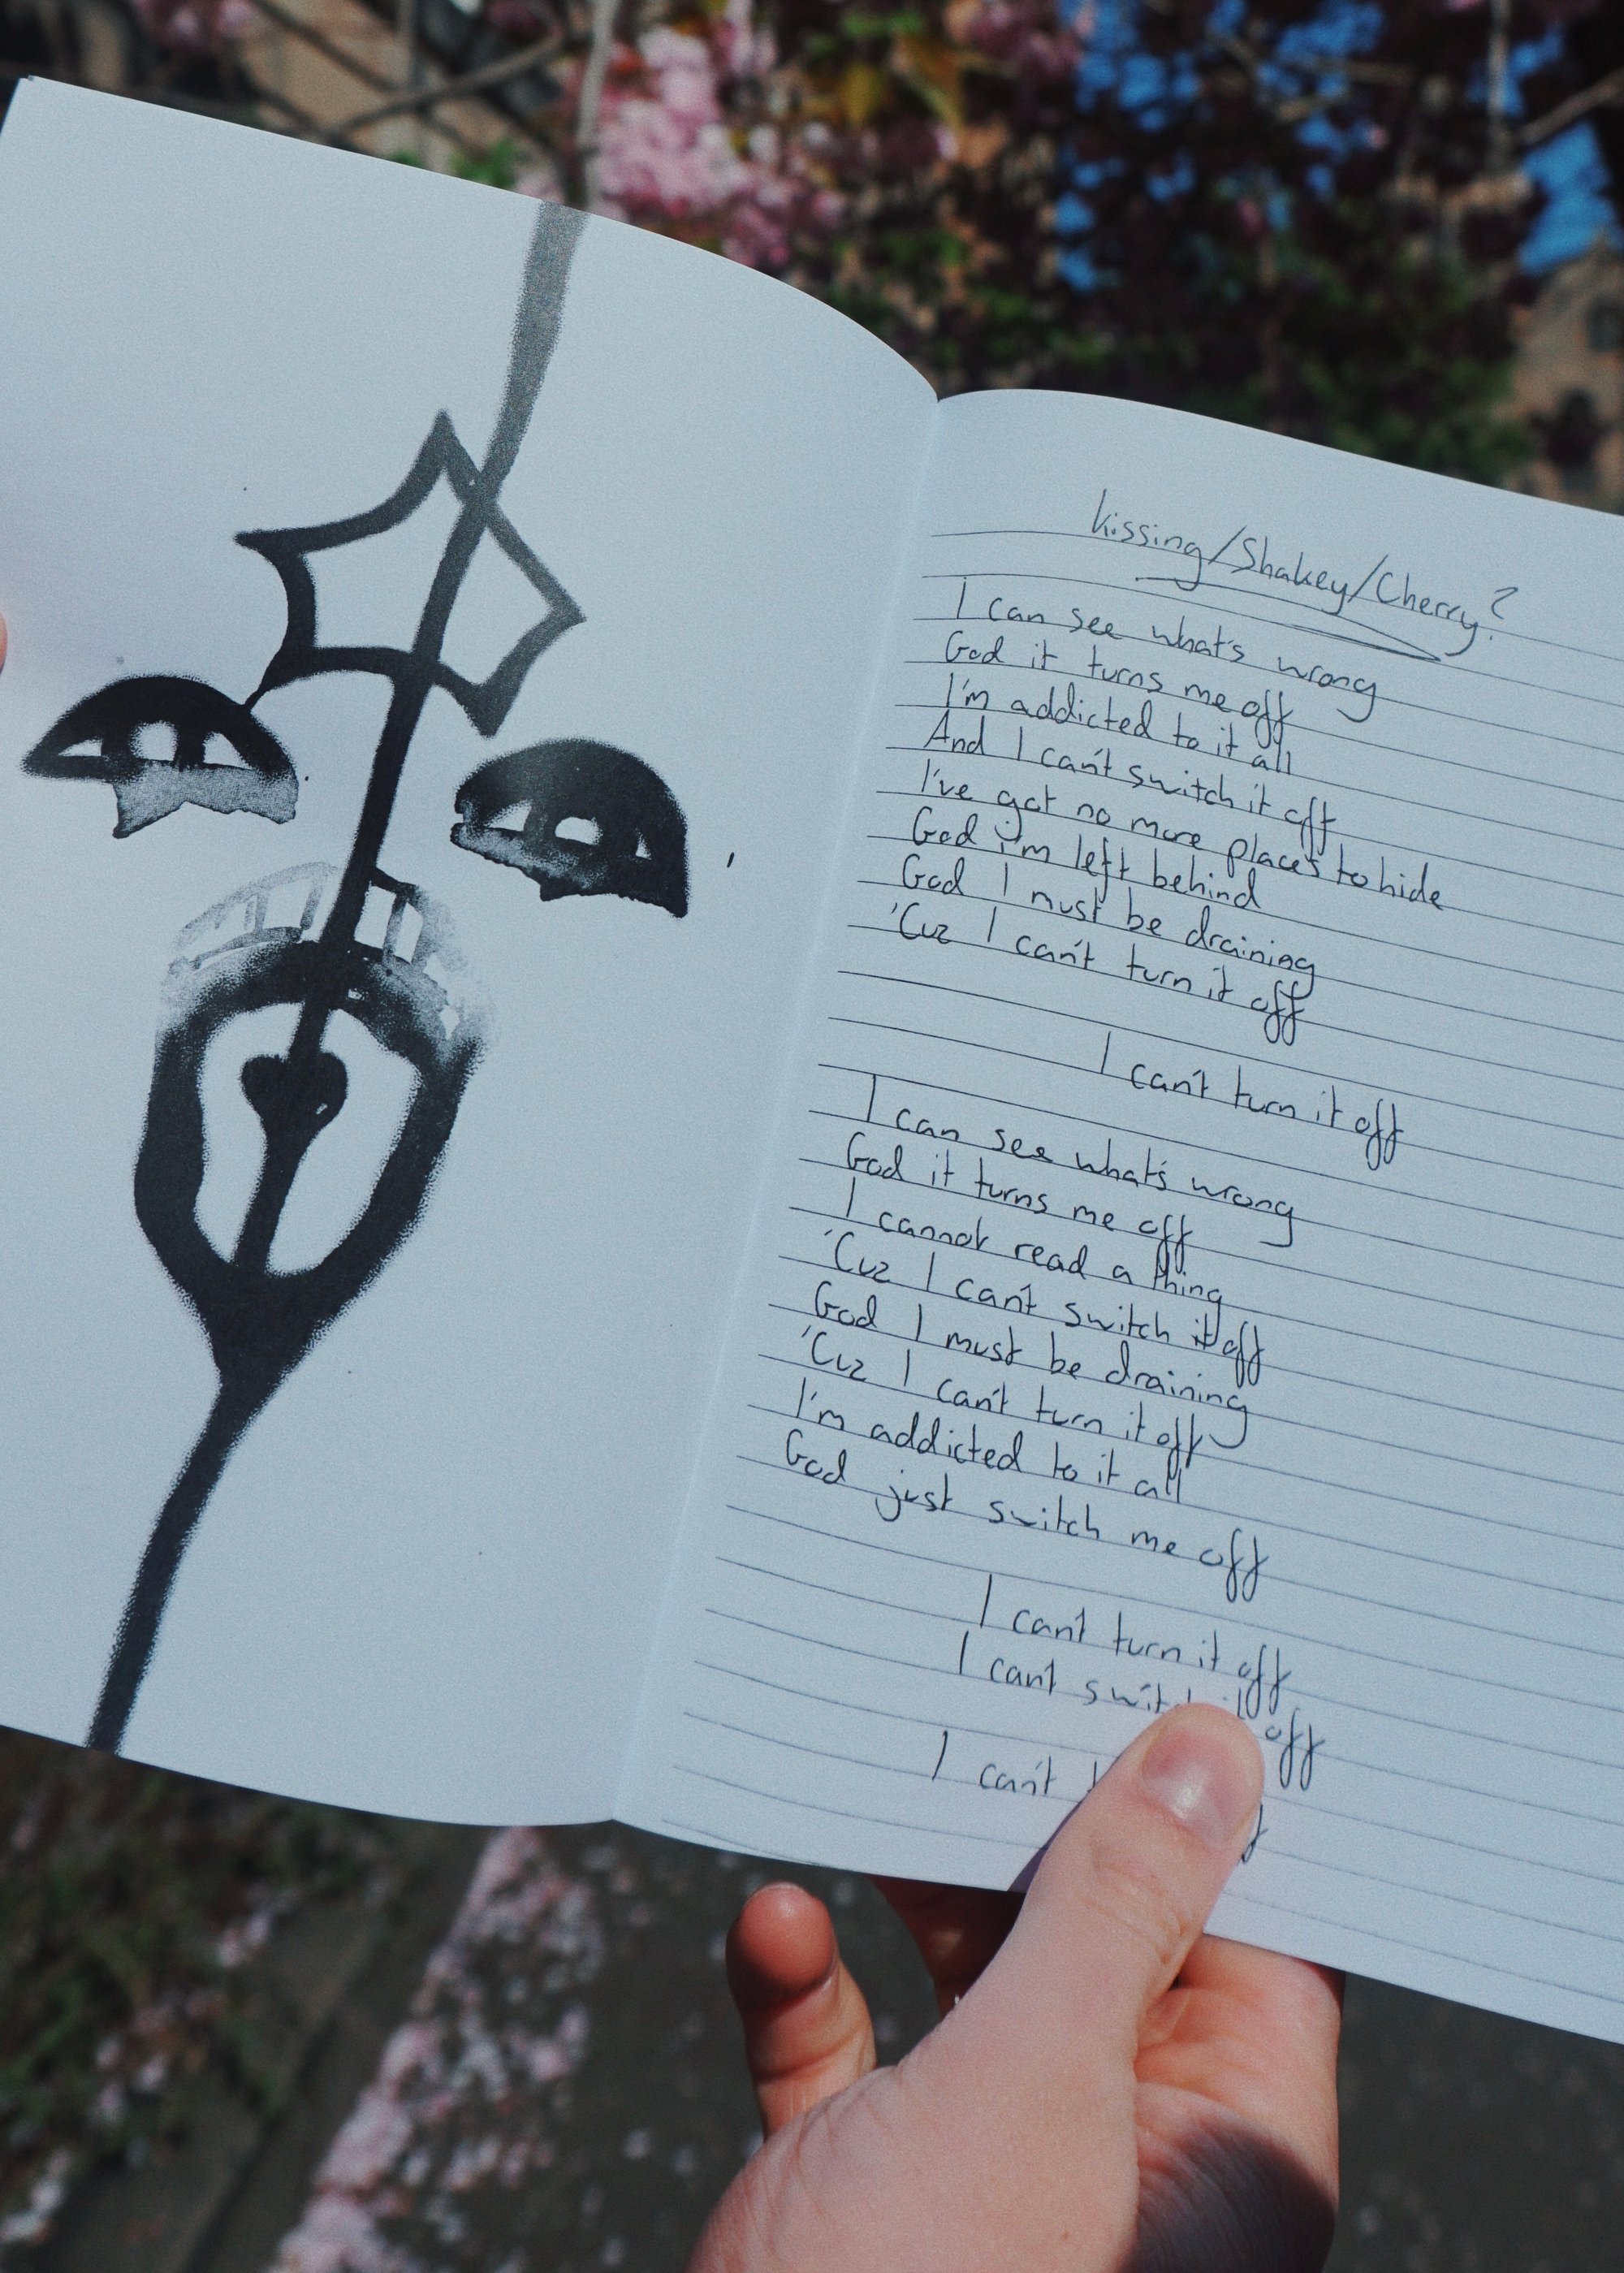 Kissing/Shakey/Cherry?
I can see what's wrong
God it turns me off
I'm addicted to it all
And I can't switch it off
I've got no more places to hide
God i'm left behind
God I must be draining
'Cuz I can't turn it off
I can't turn it off
I can see what's wrong
God it turns me off
I cannot read a thing
'Cuz I can't switch it off
God I must be draining
'Cuz I can't turn it off
I'm addicted to it all
God just switch me off
I can't turn it off
I can't switch it off
I can't